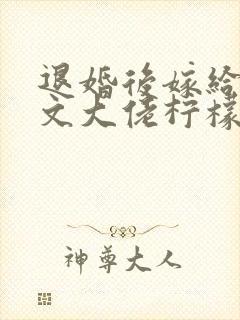 退婚後嫁給
文大佬柠檬
神尊大人